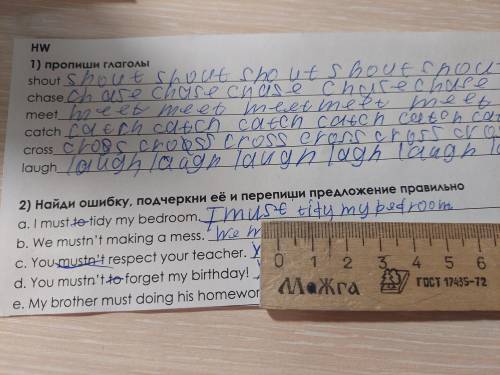 HW
1) пропиши глаголы
shout shout shout shout shout shou
chase chase chase chase chase chase
meet meet meet meet meet meet
catch catch catch catch catch catch ca
cross cross cross cross cross cross cro
laugh laugh laugh laugh lagh laugh la
2) Найди ошибку, подчеркни её и перепиши предложение правильно
a. I must to tidy my bedroom. I must tify my bedroom
b. We mustn't making a mess. We m
c. You mustn't respect your teacher.
d. You mustn't to forget my birthday!
e. My brother must doing his homewor
0 1 2 3 4 5 6
МОЖга ГОСТ 17435-72